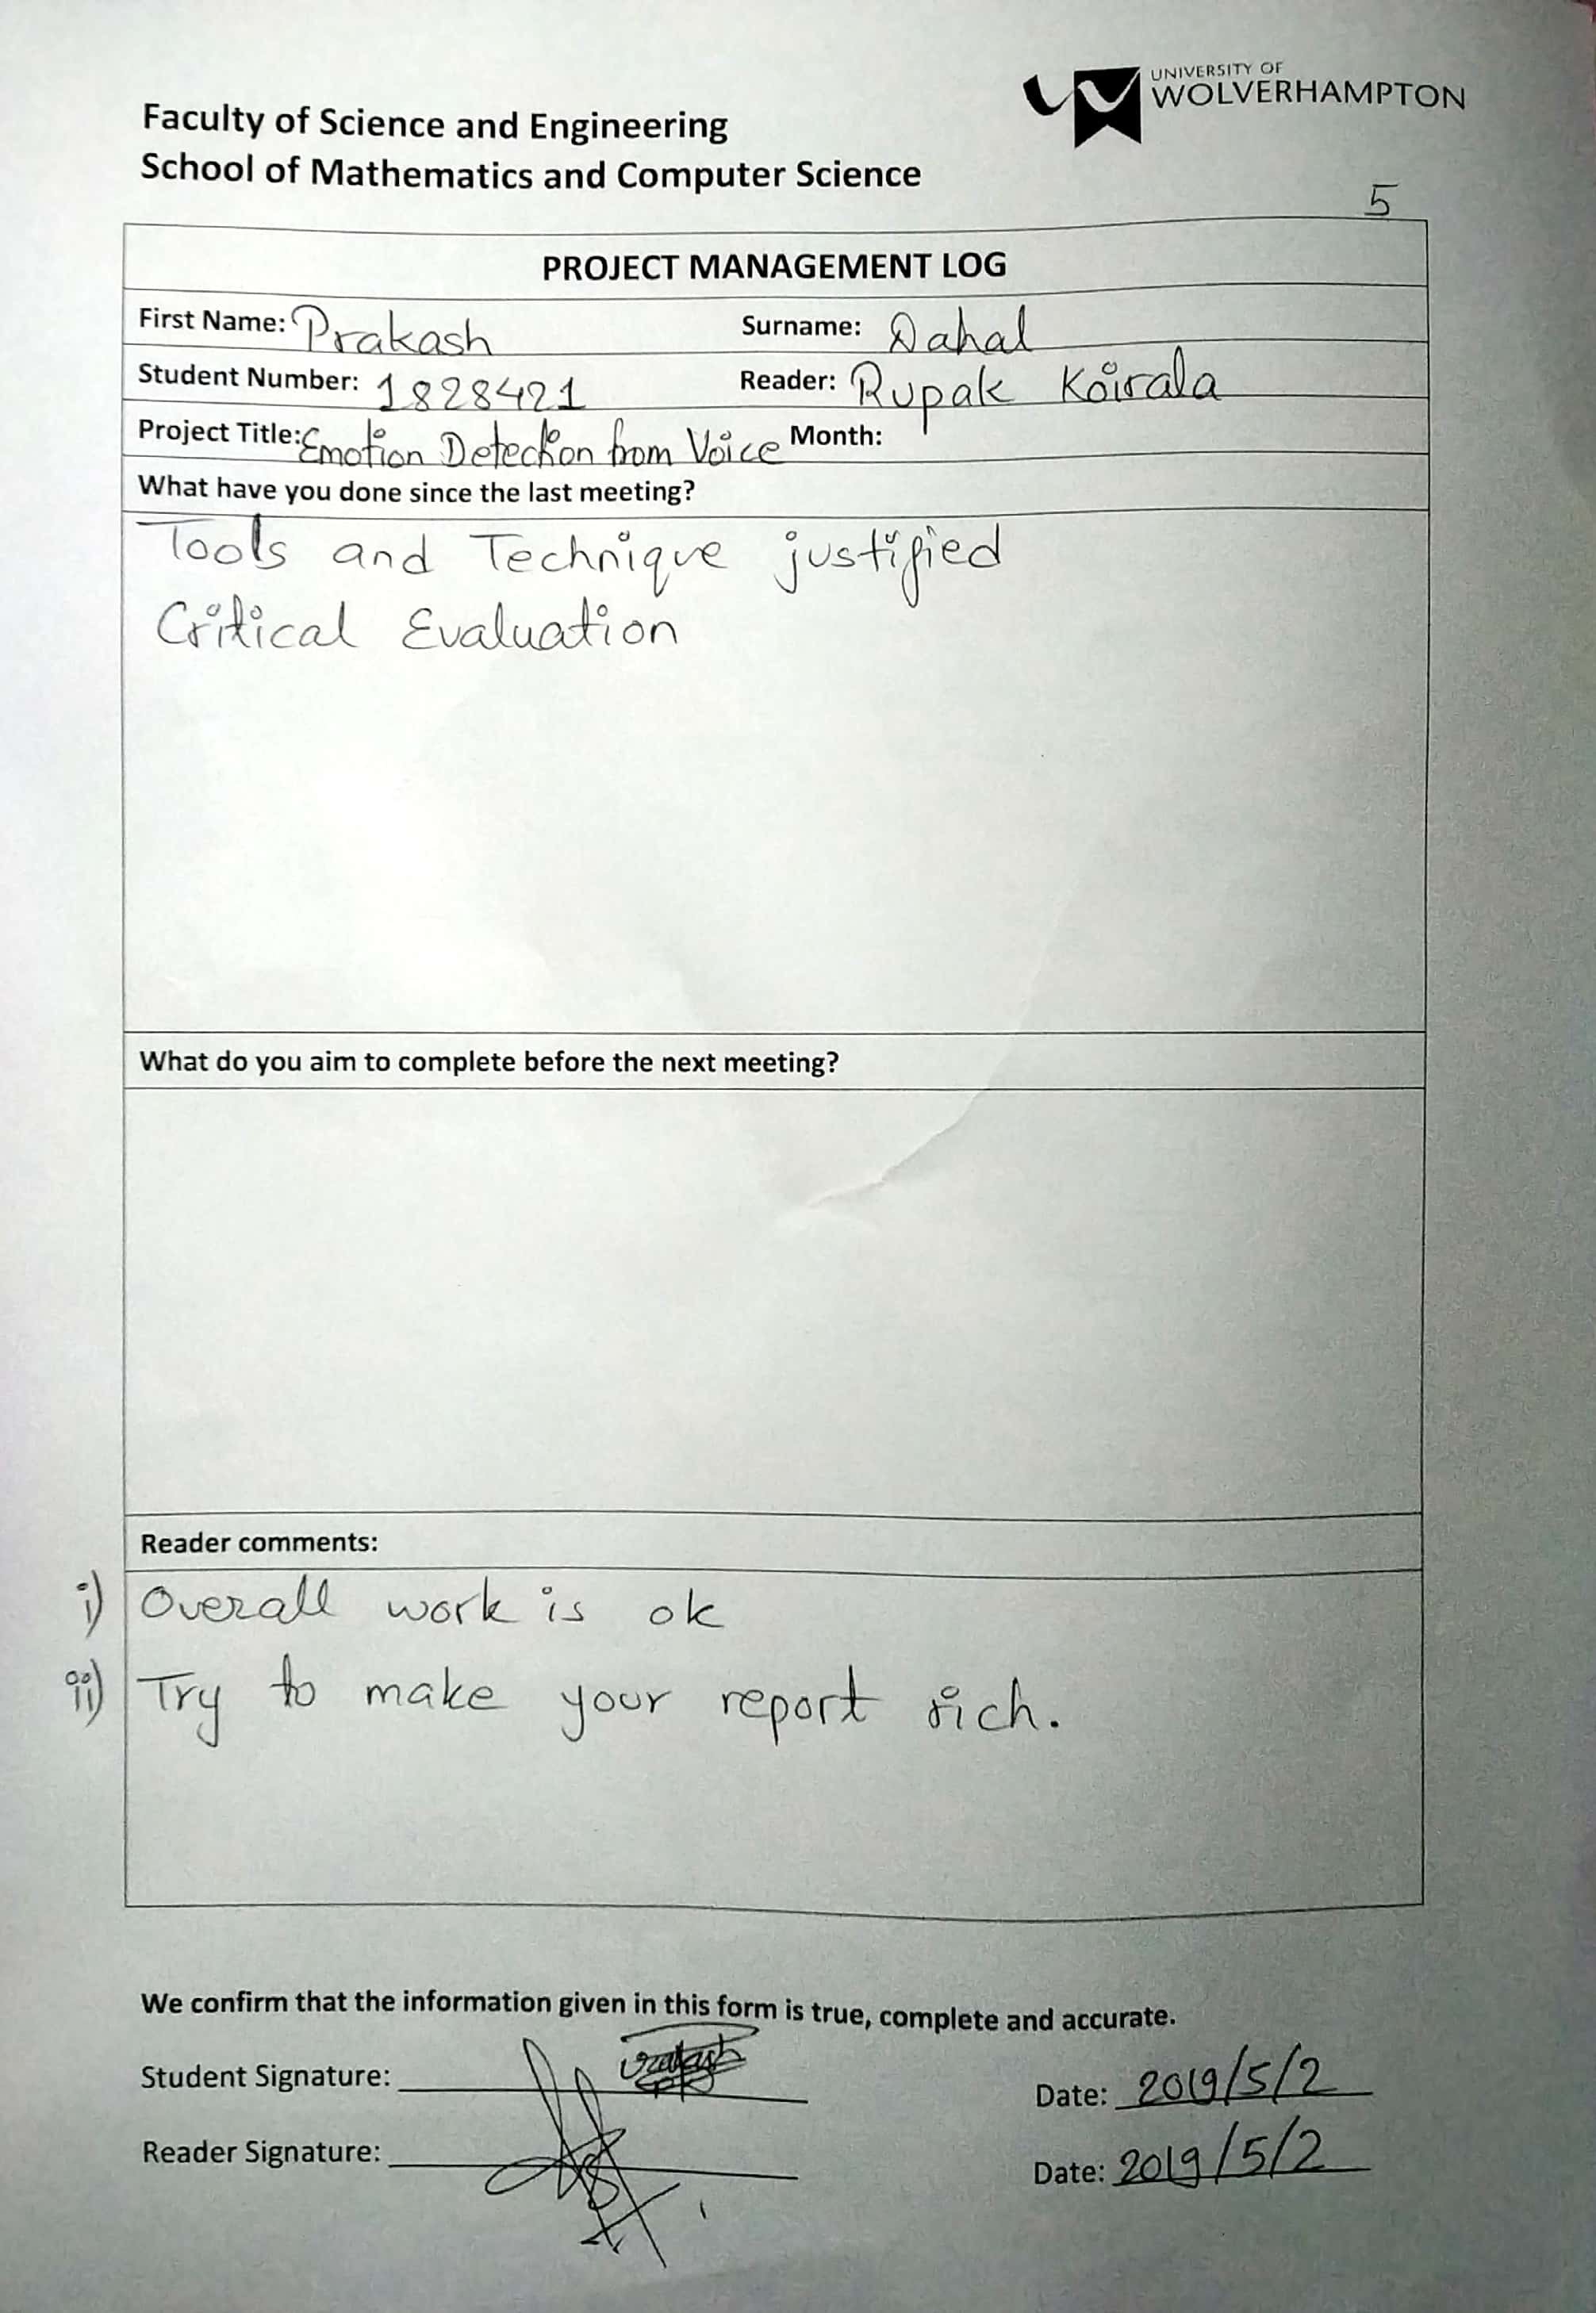 UNIVERSITY OF
WOLVERHAMPTON
Faculty of Science and Engineering
School of Mathematics and Computer Science
5
PROJECT MANAGEMENT LOG
First Name: Prakash Surname: Dahal
Student Number: 1828421 Reader: Rupak Koirala
Project Title: Emotion Detection from Voice Month:
What have you done since the last meeting?
Tools and Technique justified
Critical Evaluation
What do you aim to complete before the next meeting?
Reader comments:
i) Overall work is ok
ii) Try to make your report rich.
We confirm that the information given in this form is true, complete and accurate.
Student Signature: Date: 2019/5/2
Reader Signature: Date: 2019/5/2